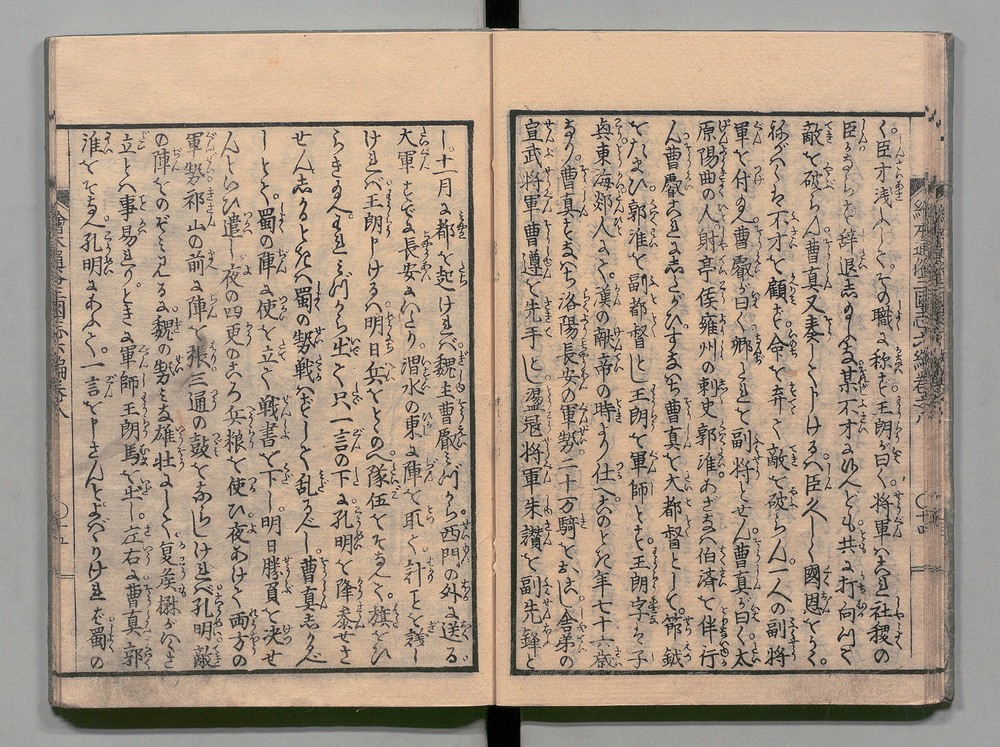 く臣才浅ふしてその職に称ず王朗が曰く将軍ハこれ社稷の
臣なりかならず辞退し玉ふな某不才なれども共に打向ひて
敵を破らん曹真又奏して申しけるハ臣久しく國恩をうく
いかでか不才を顧ず命を弃て敵を破らん一人の副将
軍を付玉へ曹叡が曰く卿これを副将とせん曹真が曰く太
原陽曲の人射亭侯雍州の刺史郭淮あざなハ伯済を伴行
ん曹叡これにしたがひすなハち曹真を大都督として節鉞
をたまひ郭淮を副都督とし王朗を軍師とす王朗字ハ子
興東海郯人にて漢の献帝の時より仕へこのとき年七十六歳
なり曹真すなハち洛陽長安の軍勢二十万騎をおこし舎弟の
宣武将軍曹遵を先手とし盪寇将軍朱讃を副先鋒と
繪本通俗三國志六編巻之八
〇十四
し十一月に都を起けれバ魏主曹叡ミづから西門の外に送る
大軍すでに長安にいたり渭水の東に陣を取て計ことを議し
けれバ王朗申しけるハ明日兵をとゝのへ隊伍をそなへて旗をひ
らき玉へそれがしミづから出て只一言の下に孔明を降参せさ
せんしかるときハ蜀の勢戦ハずして乱るべし曹真しかるべ
しとて蜀の陣に使を立て戦書を下し明日勝負を決せ
んといひ遣し夜の四更のころ兵粮を使ひ夜あけて両方の
軍勢祁山の前に陣を張三通の鼓をならしけれバ孔明敵
の陣をのぞミみるに魏の勢ミな雄壮にして夏侯楙がいくさ
立とハ事易れりときに軍師王朗馬を出し左右に曹真郭
淮をそなへ孔明にあふて一言を申さんとよバりけれバ蜀の
〇十五